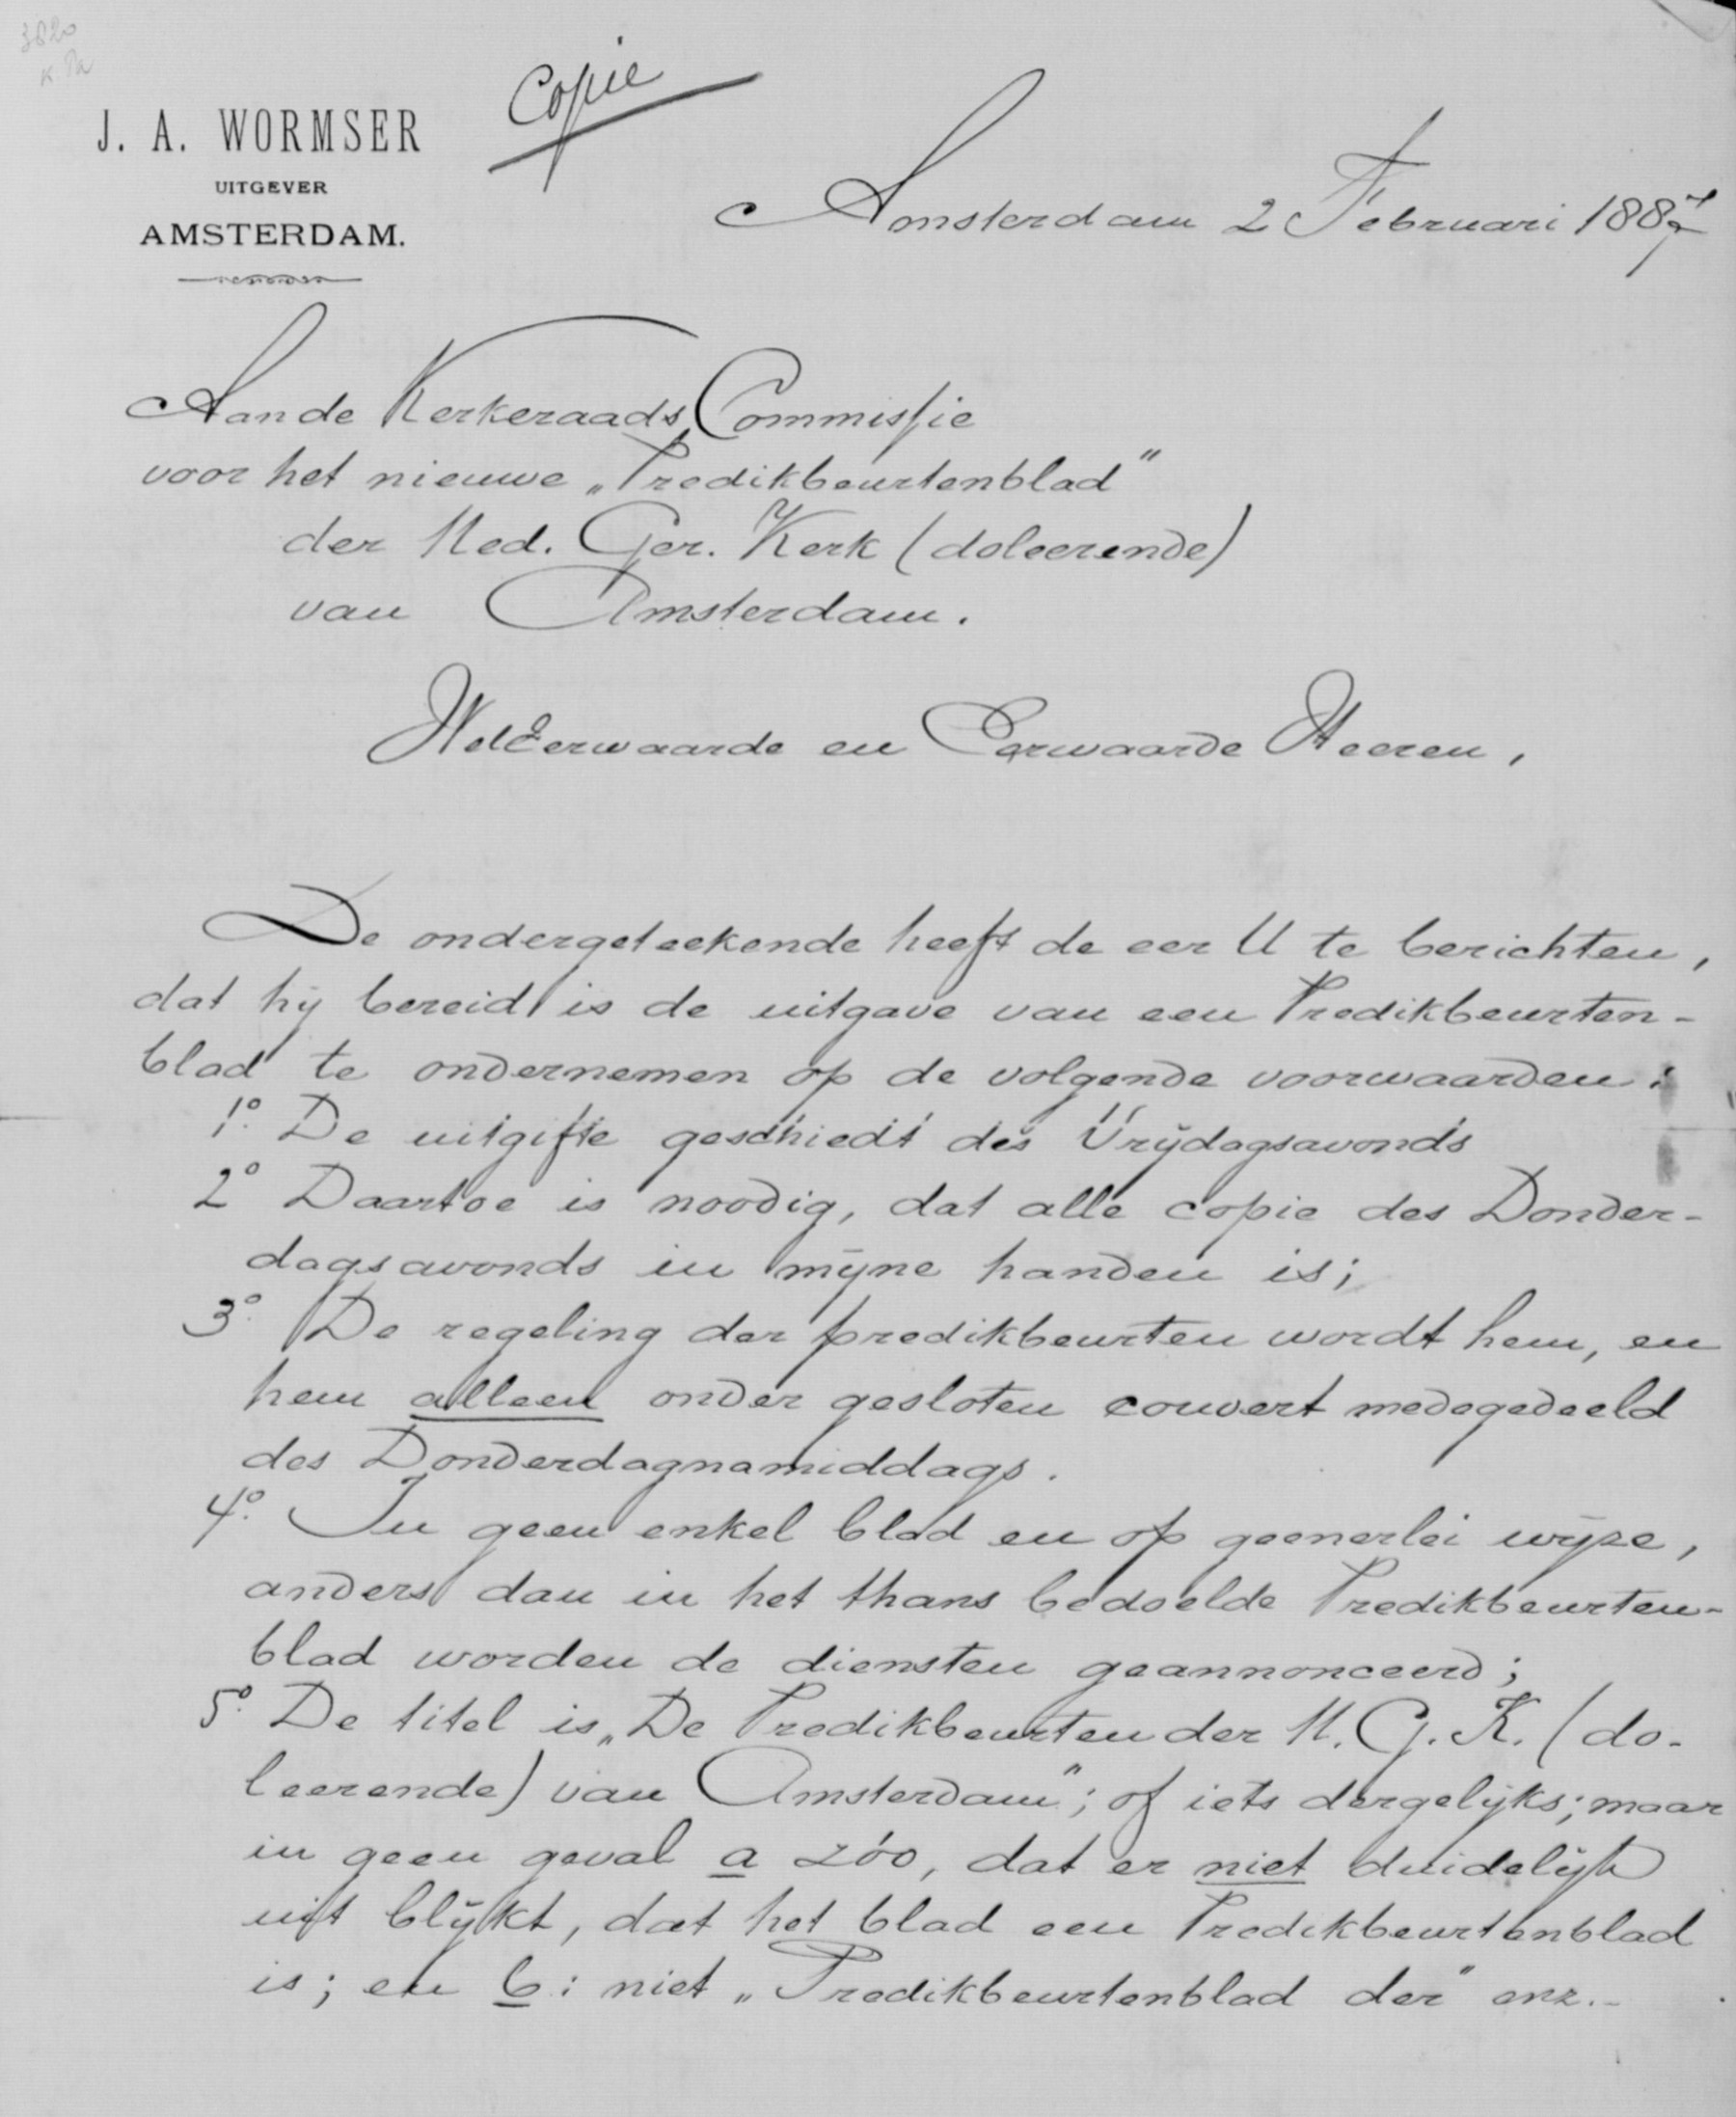 3820
Copie
J. A. WORMSER
UITGEVER
AMSTERDAM.
Amsterdam 2 Februari 1887
Aan de Kerkeraads Commissie
voor het nieuwe „Predikbeurtenblad”
der Ned. Ger. Kerk (doleerende)
van Amsterdam.
WelEerwaarde en Eerwaarde Heeren,
De ondergeteekende heeft de eer U te berichten,
dat hij bereid is de uitgave van een Predikbeurten-
blad te ondernemen op de volgende voorwaarden:
1o. De uitgifte geschiedt des Vrijdagsavonds
2o Daartoe is noodig, dat alle copie des Donder-
dagsavonds in mijne handen is;
3o. De regeling der predikbeurten wordt hem, en
hem alleen onder gesloten couvert medegedeeld
des Donderdagnamiddags.
4o. In geen enkel blad en op geenerlei wijze,
anders dan in het thans bedoelde Predikbeurten-
blad worden de diensten geannonceerd;
5o. De titel is „De Predikbeurten der N. G. K. (do-
leerende) van Amsterdam”; of iets dergelijks; maar
in geen geval a zóo, dat er niet duidelijk
uit blijkt, dat het blad een Predikbeurtenblad
is; en b: niet „Predikbeurtenblad der” enz.-